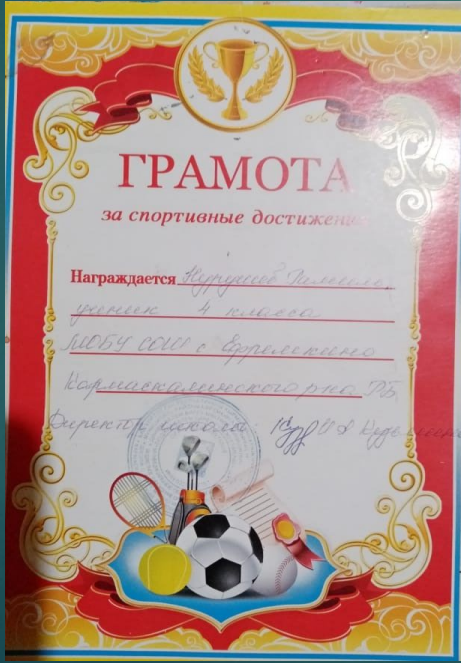 ГРАМОТА
за спортивные достижения
Награждается
ученик 4 класса
МОБУ СОШ с Ефремкино
Кармаскалинского р-на РБ,
Директор школы: